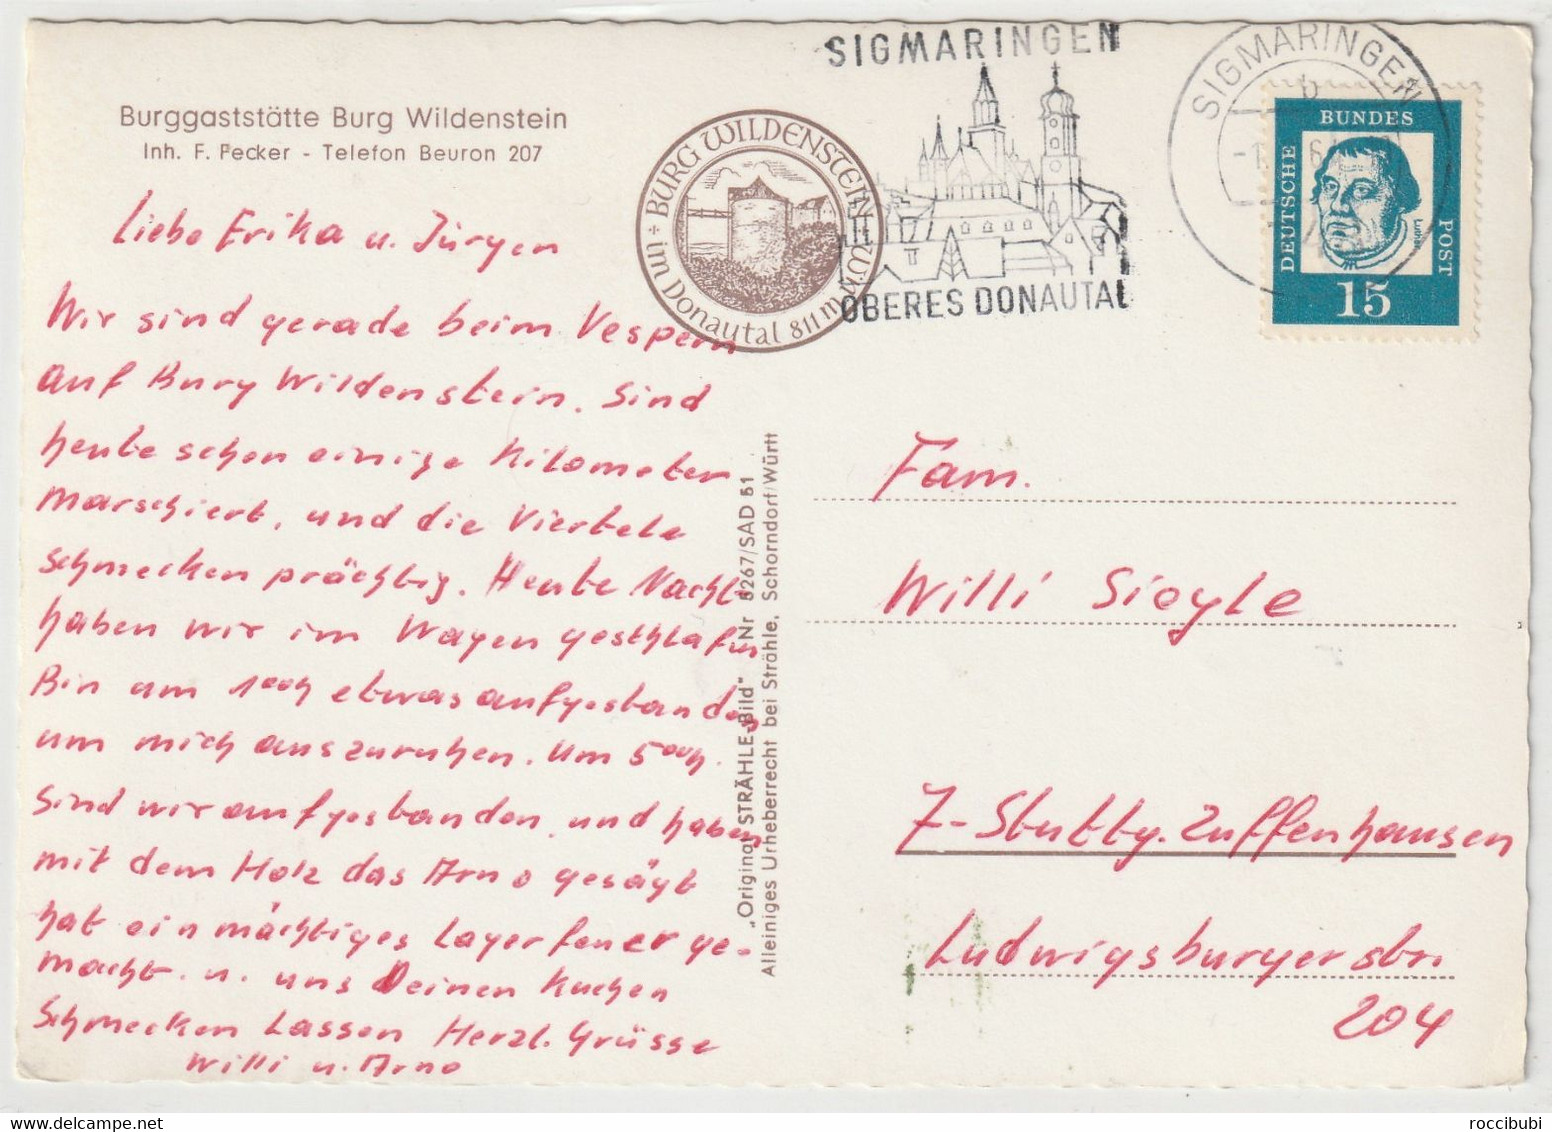 Burggaststätte Burg Wildenstein
Inh. F. Pecker - Telefon Beuron 207
BURG WILDENSTEIN
im Donautal 811 m ü.M.
SIGMARINGEN
OBERES DONAUTAL
SIGMARINGEN
b
DEUTSCHE
BUNDES
POST
Luther
15
Liebe Erika u. Jürgen
Wir sind gerade beim Vespern
auf Burg Wildenstein. Sind
heute schon einige Kilometer
marschiert, und die Viertele
schmecken prächtig. Heute Nacht
haben wir im Wagen geschlafen
Bin am 1ooh etwas aufgestanden
um mich auszuruhen. Um 5ooh.
sind wir aufgestanden, und haben
mit dem Holz das Arno gesägt
hat ein mächtiges Lagerfeuer ge-
macht. u. uns Deinen Kuchen
Schmecken Lassen Herzl. Grüsse
Willi u. Arno
„Original STRÄHLE-Bild" Nr 5267/SAD 61
Alleiniges Urheberrecht bei Strähle, Schorndorf/Württ
Fam.
Willi Siegle
7-Stuttg. Zuffenhausen
Ludwigsburgerstr.
204
roccibubi